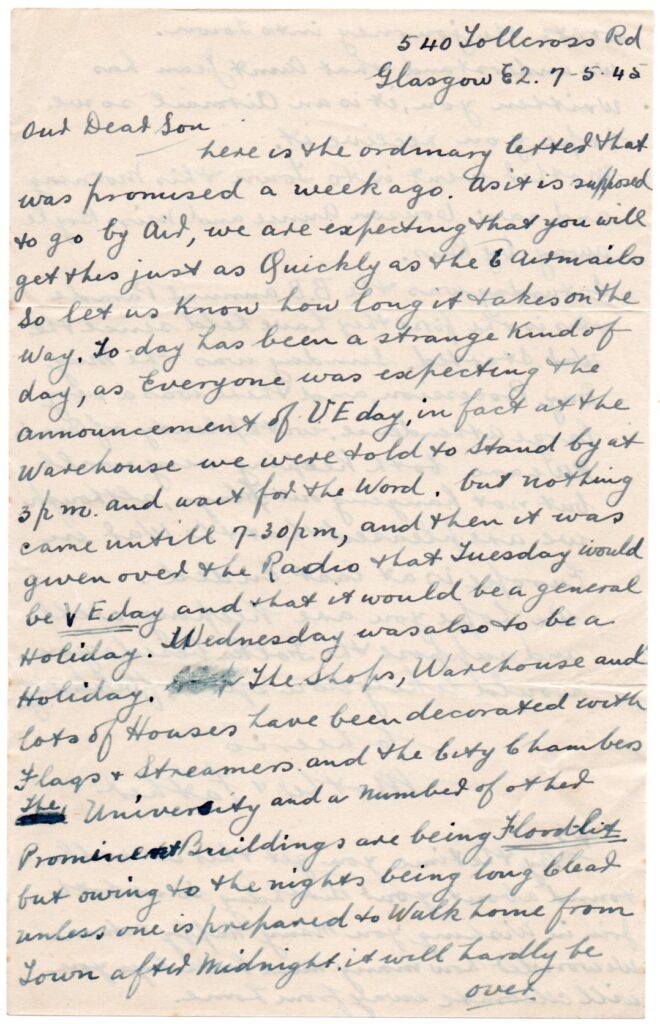 540 Tollcross Rd
Glasgow E2. 7-5-45
Our Dear Son
here is the ordinary letter that
was promised a week ago. as it is supposed
to go by Air, we are expecting that you will
get this just as Quickly as the 6 Airmails
So let us Know how long it takes on the
way. To-day has been a strange Kind of
day, as Everyone was expecting the
announcement of VE day, in fact at the
Warehouse we were told to Stand by at
3 p.m. and wait for the Word. but nothing
came untill 7-30pm, and then it was
given over the Radio that Tuesday would
be VE day and that it would be a general
Holiday. Wednesday was also to be a
Holiday. The Shops, Warehouse and
lots of Houses have been decorated with
Flags + Streamers. and the City Chambers
The University and a number of other
Prominent Buildings are being Flood-Lit
but owing to the nights being long Clear
unless one is prepared to Walk home from
Town after Midnight. it will hardly be
over